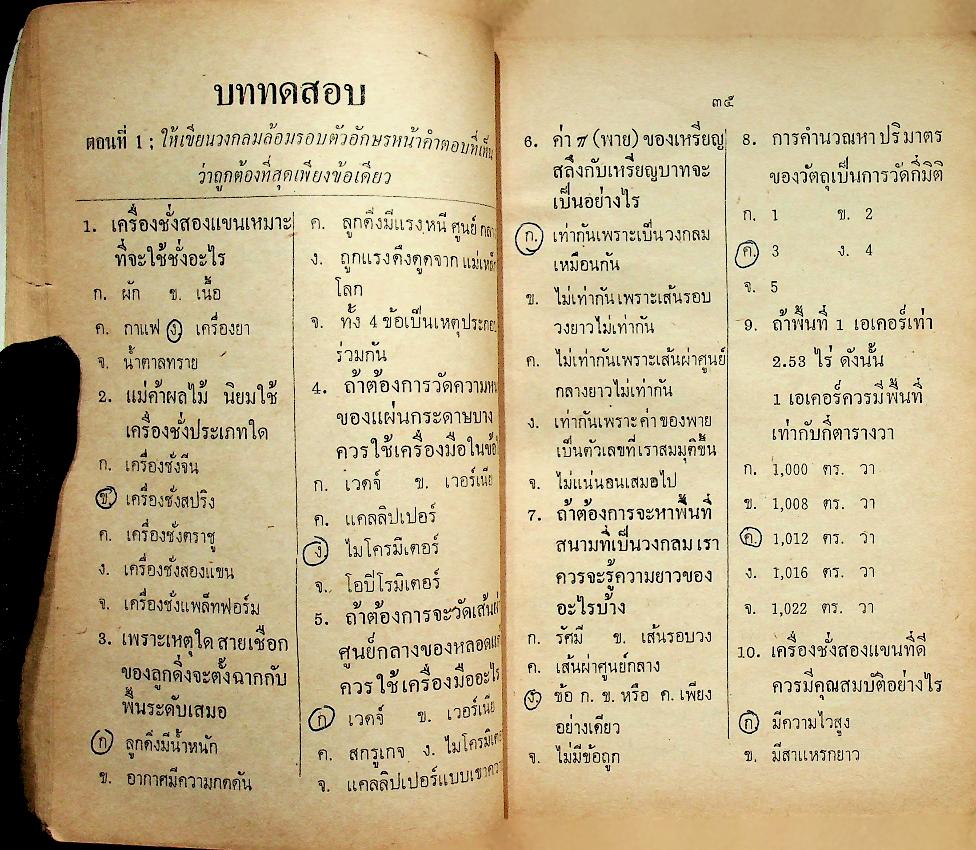 บททดสอบ
ตอนที่ 1 ; ให้เขียนวงกลมล้อมรอบตัวอักษรหน้าคำตอบที่เห็น
ว่าถูกต้องที่สุดเพียงข้อเดียว
1. เครื่องชั่งสองแขนเหมาะ
ที่จะใช้ชั่งอะไร
ก. ผัก ข. เนื้อ
ค. กาแฟ ง. เครื่องยา
จ. น้ำตาลทราย
2. แม่ค้าผลไม้ นิยมใช้
เครื่องชั่งประเภทใด
ก. เครื่องชั่งจีน
ข. เครื่องชั่งสปริง
ค. เครื่องชั่งตราชู
ง. เครื่องชั่งสองแขน
จ. เครื่องชั่งแพล็ทฟอร์ม
3. เพราะเหตุใด สายเชือก
ของลูกดิ่งจะตั้งฉากกับ
พื้นระดับเสมอ
ก. ลูกดิ่งมีน้ำหนัก
ข. อากาศมีความกดดัน
ค. ลูกดิ่งมีแรงหนีศูนย์
ง. ถูกแรงดึงดูดจาก
โลก
จ. ทั้ง 4 ข้อเป็น
ร่วมกัน
4. ถ้าต้องการวัด
ของแผ่นกระดาษบาง
ควรใช้เครื่องมือใน
ก. เวดจ์ ข. เวอร์เนีย
ค. แคลลิปเปอร์
ง. ไมโครมิเตอร์
จ. โอปิโรมิเตอร์
5. ถ้าต้องการจะวัด
ศูนย์กลางของ
ควรใช้เครื่องมืออะไร
ก. เวดจ์ ข. เวอร์เนีย
ค. สกรูเกจ ง.
จ. แคลลิปเปอร์แบบ
๓๕
6. ค่า π (พาย) ของเหรียญ
สลึงกับเหรียญบาทจะ
เป็นอย่างไร
ก. เท่ากันเพราะเป็นวงกลม
เหมือนกัน
ข. ไม่เท่ากันเพราะเส้นรอบ
วงยาวไม่เท่ากัน
ค. ไม่เท่ากันเพราะเส้นผ่าศูนย์
กลางยาวไม่เท่ากัน
ง. เท่ากันเพราะค่าของพาย
เป็นตัวเลขที่เราสมมุติขึ้น
จ. ไม่แน่นอนเสมอไป
7. ถ้าต้องการจะหาพื้นที่
สนามที่เป็นวงกลม เรา
ควรจะรู้ความยาวของ
อะไรบ้าง
ก. รัศมี ข. เส้นรอบวง
ค. เส้นผ่าศูนย์กลาง
ง. ข้อ ก. ข. หรือ ค. เพียง
อย่างเดียว
จ. ไม่มีข้อถูก
8. การคำนวณหาปริมาตร
ของวัตถุเป็นการวัดกี่มิติ
ก. 1 ข. 2
ค. 3 ง. 4
จ. 5
9. ถ้าพื้นที่ 1 เอเคอร์เท่า
2.53 ไร่ ดังนั้น
1 เอเคอร์ควรมีพื้นที่
เท่ากับกี่ตารางวา
ก. 1,000 ตร. วา
ข. 1,008 ตร. วา
ค. 1,012 ตร. วา
ง. 1,016 ตร. วา
จ. 1,022 ตร. วา
10. เครื่องชั่งสองแขนที่ดี
ควรมีคุณสมบัติอย่างไร
ก. มีความไวสูง
ข. มีสาแหรกยาว